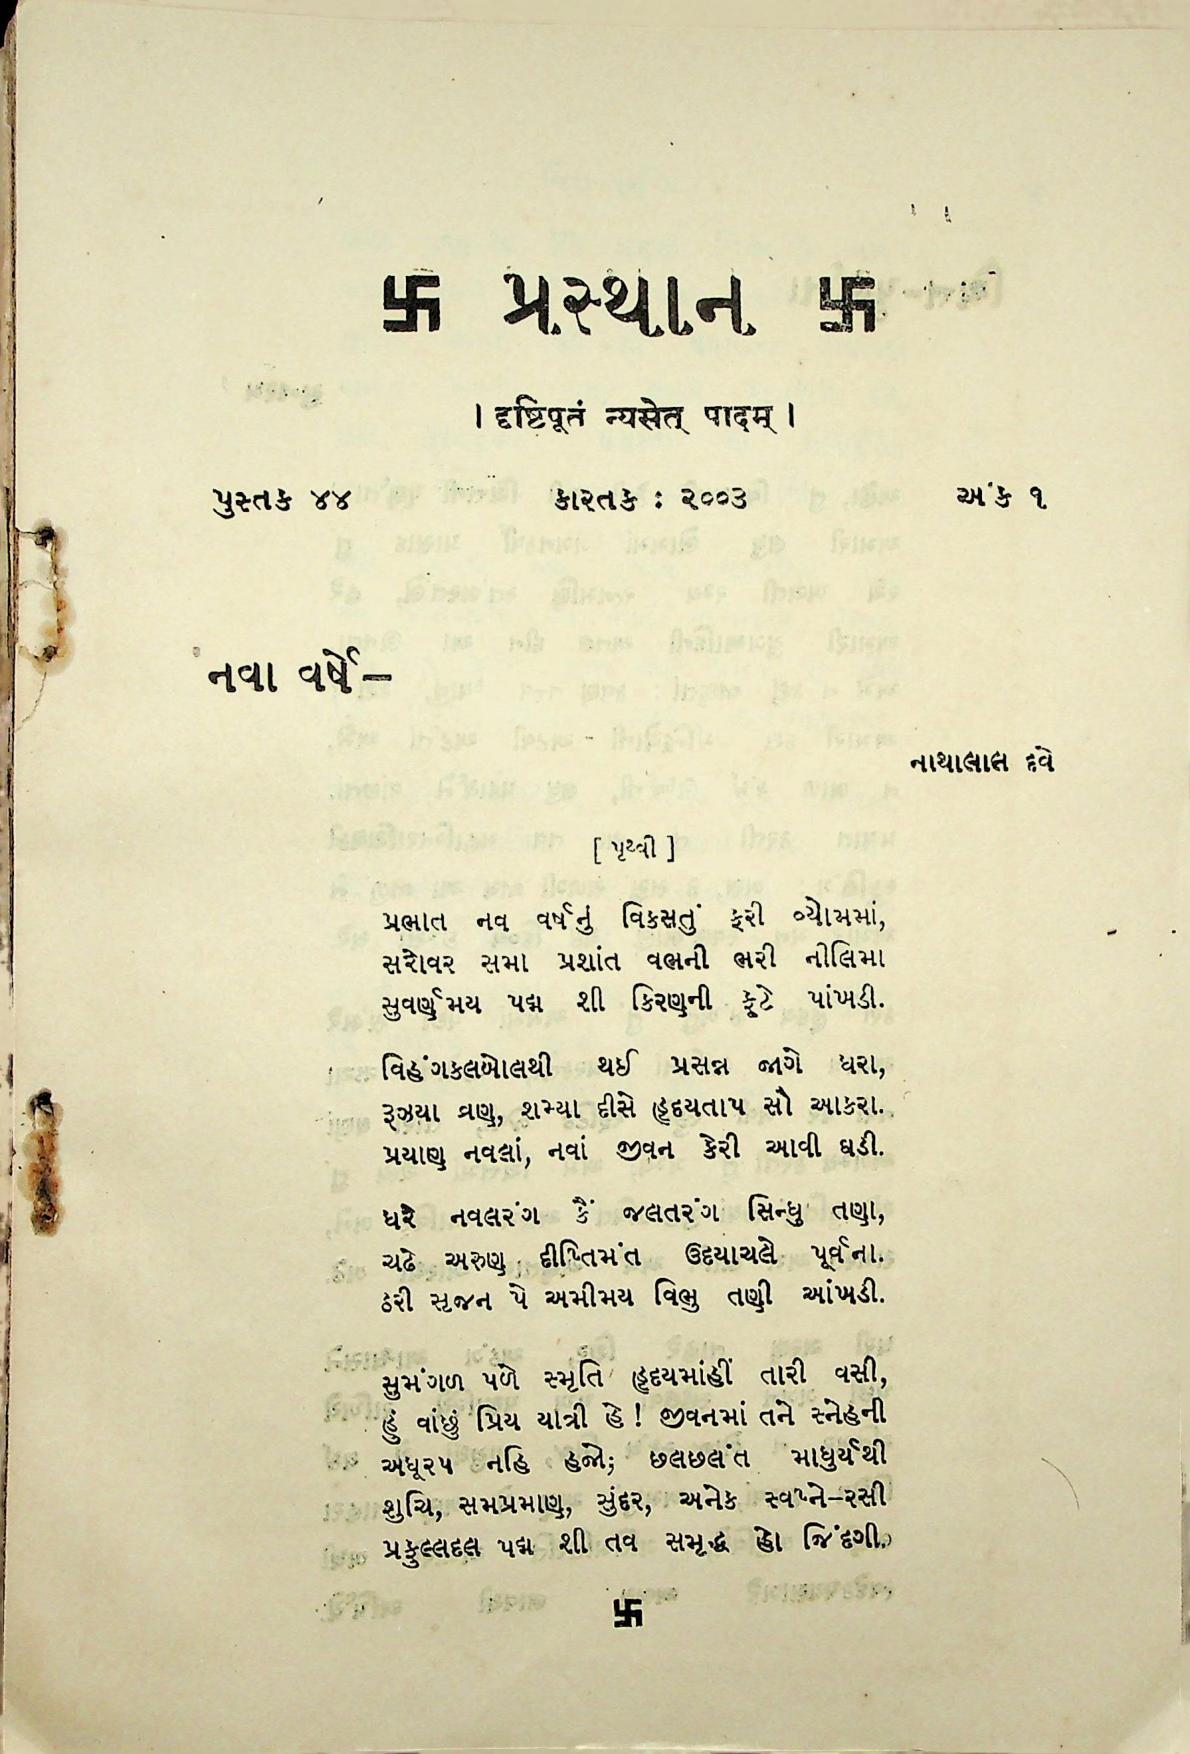 卐 પ્રસ્થાન 卐
। दृष्टिपूतं न्यसेत् पादम् ।
પુસ્તક ૪૪ કારતક : ૨૦૦૩ અંક ૧
નવા વર્ષે–
નાથાલાલ દવે
[ પૃથ્વી ]
પ્રભાત નવ વર્ષનું વિકસતું ફરી વ્યોમમાં,
સરોવર સમા પ્રશાંત વભની ભરી નીલિમા
સુવર્ણમય પદ્મ શી કિરણની ફૂટે પાંખડી.
વિહંગકલબોલથી થઈ પ્રસન્ન જાગે ધરા,
રૂઝયા વ્રણ, શમ્યા દીસે હૃદયતાપ સૌ આકરા.
પ્રયાણ નવલાં, નવાં જીવન કેરી આવી ઘડી.
ધરે નવલરંગ કૈં જલતરંગ સિન્ધુ તણા,
ચઢે અરુણ દીપ્તિમંત ઉદયાચલે પૂર્વના.
ઠરી સૃજન પે અમીમય વિભુ તણી આંખડી.
સુમંગળ પળે સ્મૃતિ હૃદયમાંહીં તારી વસી,
હું વાંછું પ્રિય યાત્રી હે ! જીવનમાં તને સ્નેહની
અધૂરપ નહિ હજો; છલછલંત માધુર્યથી
શુચિ, સમપ્રમાણ, સુંદર, અનેક સ્વપ્ને–રસી
પ્રફુલ્લદલ પદ્મ શી તવ સમૃદ્ધ હો જિંદગી.
卐